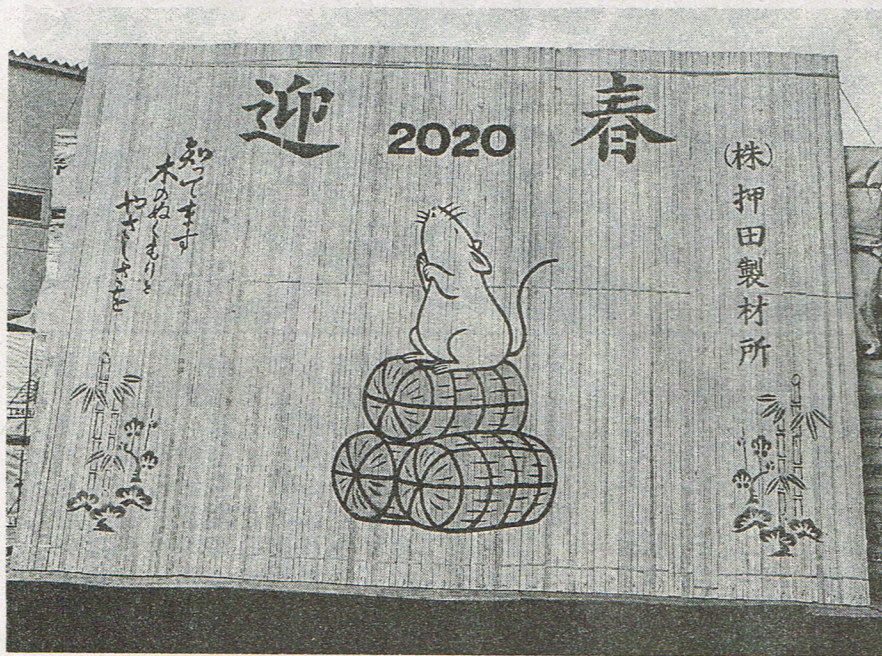 迎 2020 春
(株)押田製材所
知ってます
木のぬくもりと
やさしさを